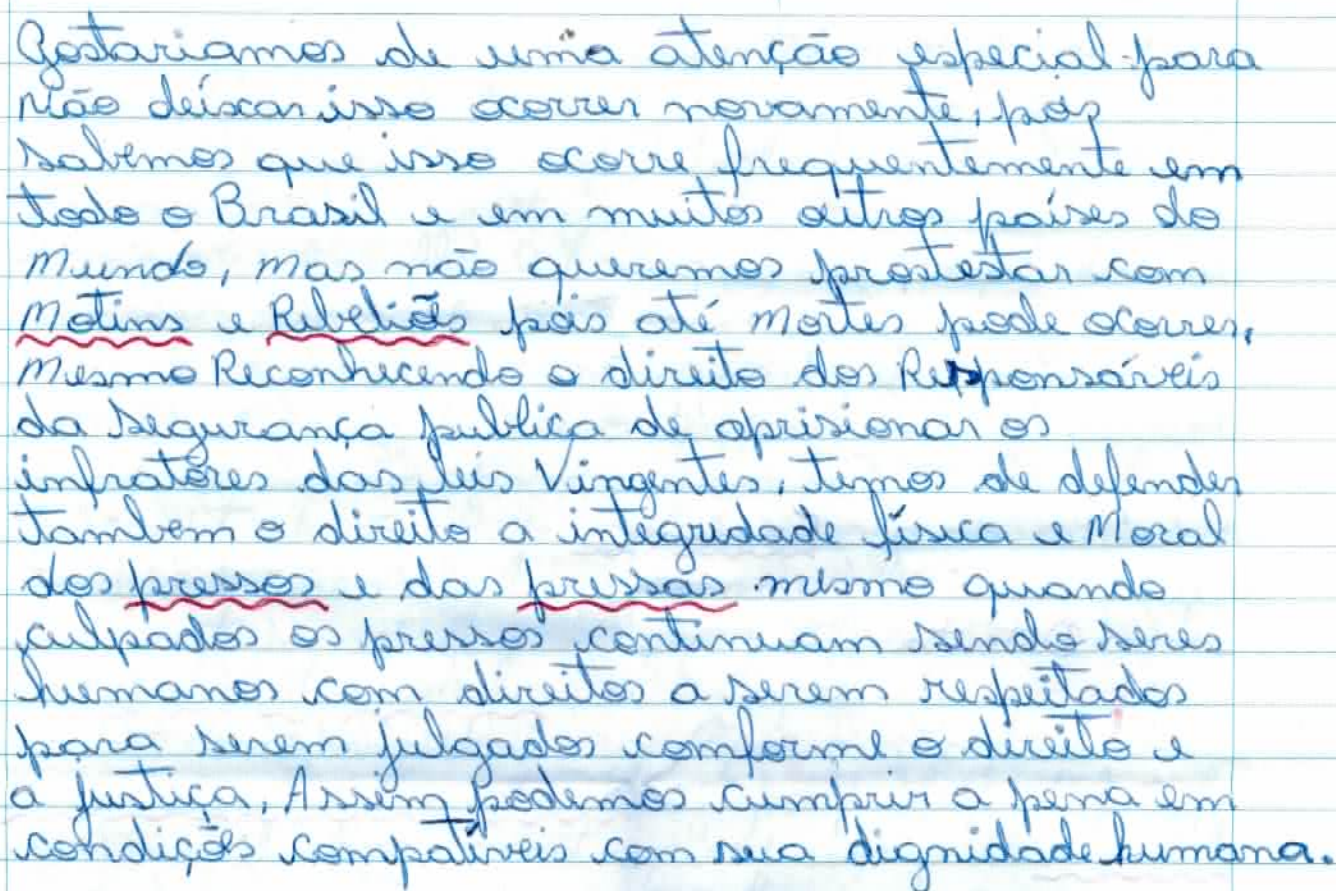 Gostariamos de uma atenção especial para
não deixar isso ocorrer novamente, pois
sabemos que isso ocorre frequentemente em
todo o Brasil e em muitos outros países do
Mundo, Mas não queremos prostestar com
Motins e Rebeliões pois até Mortes pode ocorrer,
Mesmo Reconhecendo o direito dos Responsáveis
da segurança publica de aprisionar os
infratores das leis Vingentes, temos de defender
tambem o direito a integridade física e Moral
dos pressos e das pressas mesmo quando
culpados os pressos continuam sendo seres
humanos com direitos a serem respeitados
para serem julgados comforme o direito e
a justiça, Assim podemos cumprir a pena em
condições compativeis com sua dignidade humana.